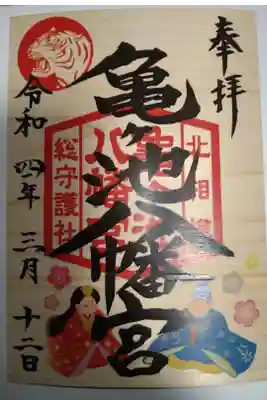 奉拝
亀ヶ池八幡宮
北相
亀ヶ池
八幡宮
総守護社
令和四年三月十二日